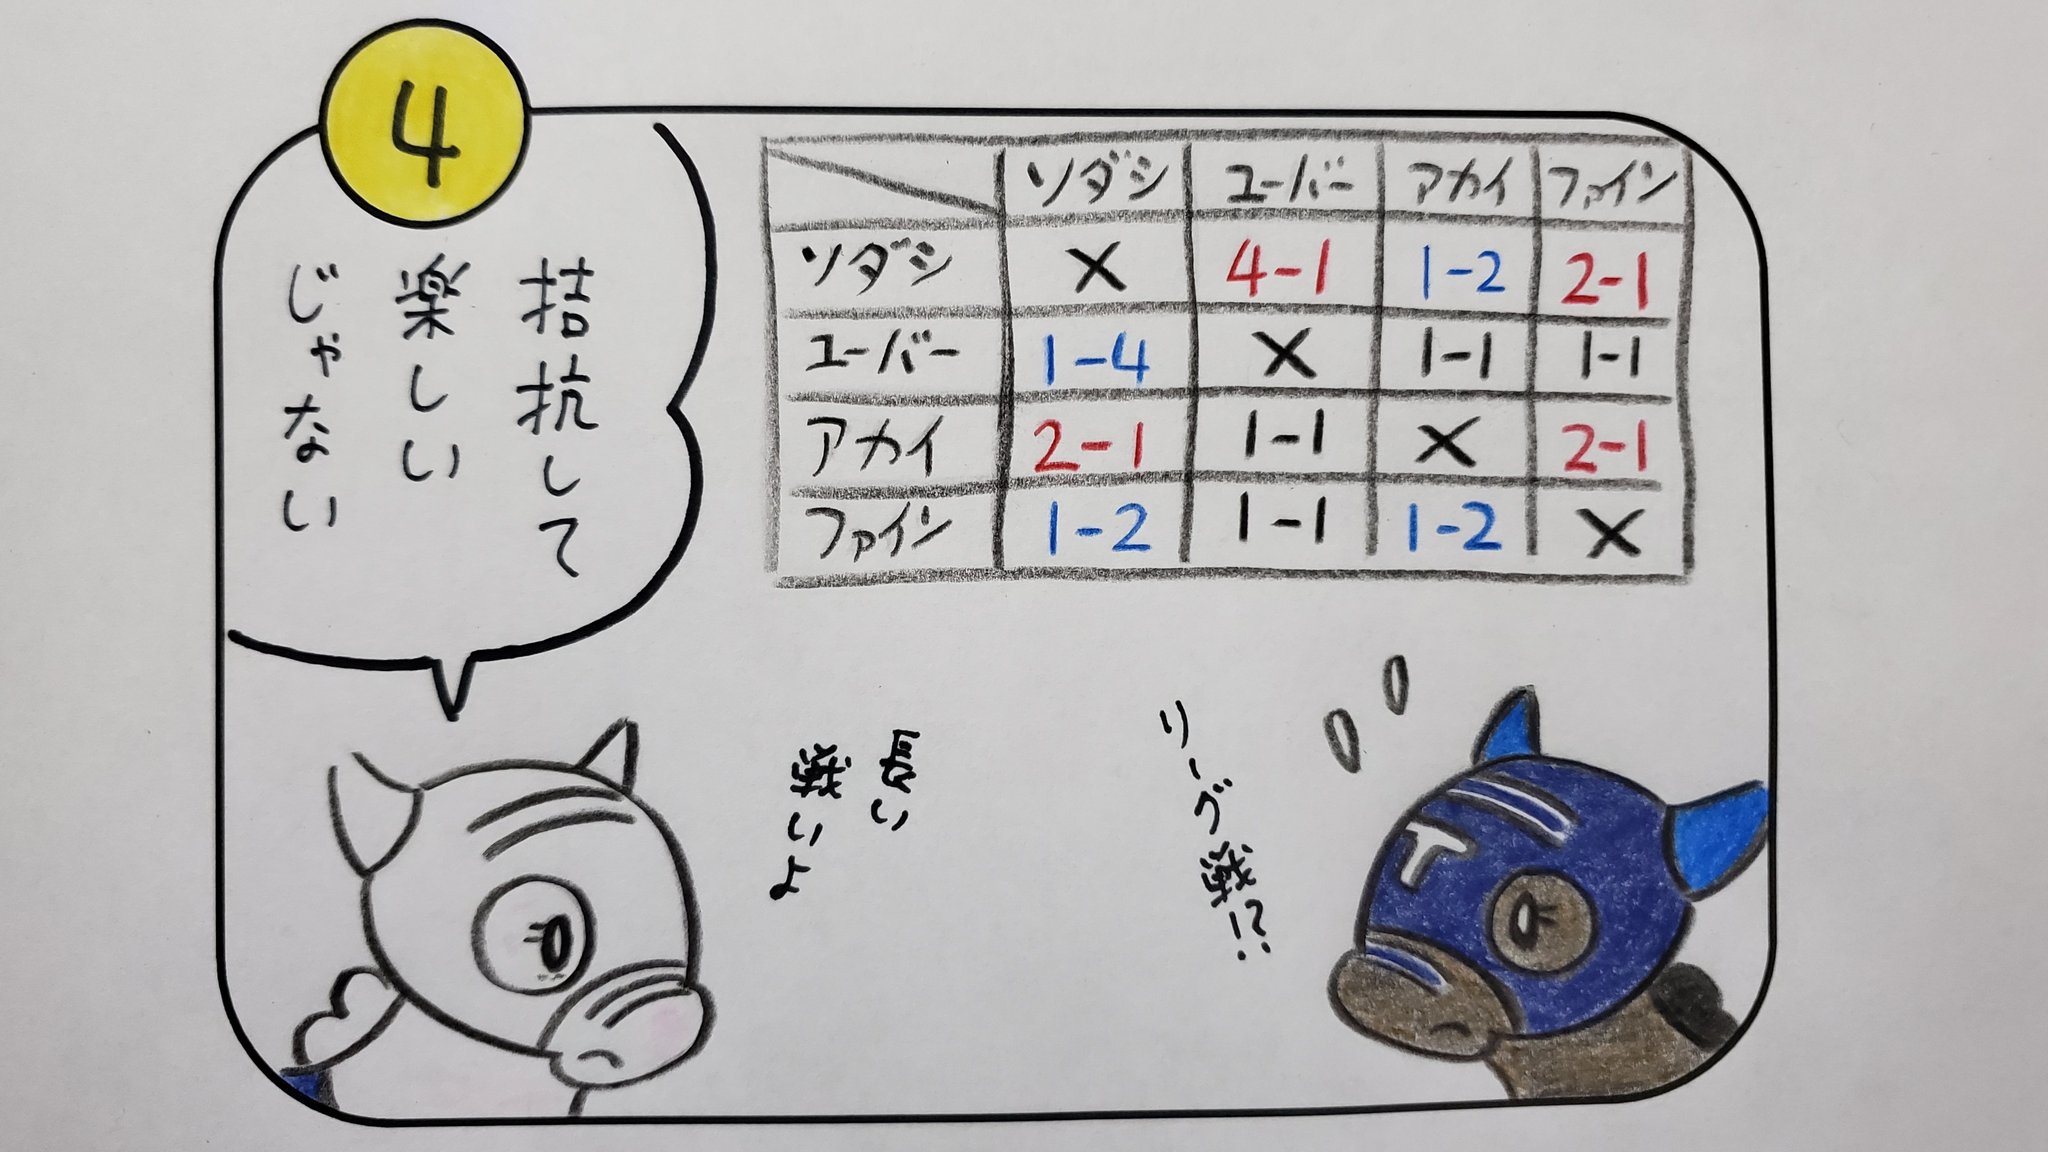 4
拮抗して
楽しい
じゃない
ソダシ ユーバー アカイ ファイン
ソダシ X 4-1 1-2 2-1
ユーバー 1-4 X 1-1 1-1
アカイ 2-1 1-1 X 2-1
ファイン 1-2 1-1 1-2 X
リーグ戦!?
長い
戦いよ
T